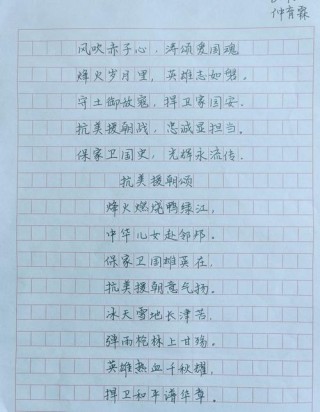 仲育霖
风吹赤子心，涛颂爱国魂
烽火岁月里，英雄志如磐。
守土御敌寇，捍卫家国安。
抗美援朝战，忠诚显担当。
保家卫国史，光辉永流传。
抗美援朝颂
烽火燃烧鸭绿江，
中华儿女赴邻邦。
保家卫国雄英在，
抗美援朝意气扬。
冰天雪地长津苦，
弹雨枪林上甘殇。
英雄热血千秋耀，
捍卫和平谱华章。